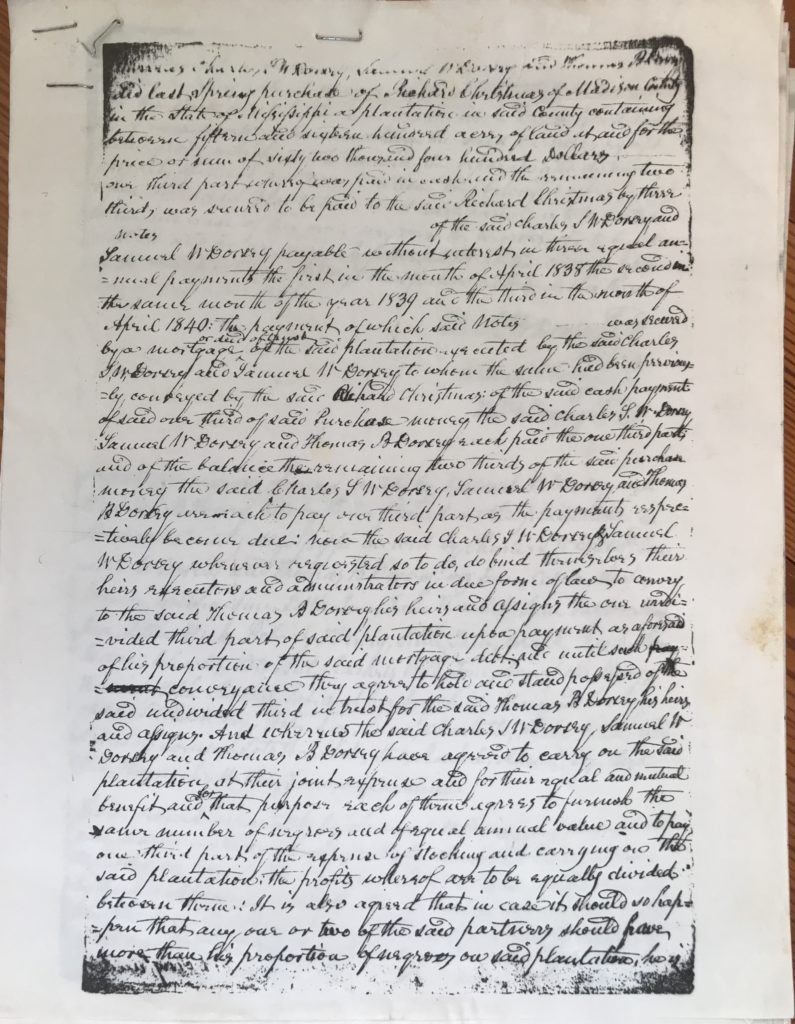 Whereas Charles S W Dorsey, Samuel W Dorsey and Thomas B Dorsey
did last Spring purchase of Richard Christmas of Madison County
in the State of Mississippi a plantation in said County containing
between fifteen and sixteen hundred acres of land at and for the
price or sum of sixty two thousand four hundred Dollars
one third part whereof was paid in cash and the remaining two
thirds was secured to be paid to the said Richard Christmas by three
notes of the said Charles S W Dorsey and
Samuel W Dorsey payable without interest in three equal an-
=nual payments the first in the month of April 1838 the second in
the same month of the year 1839 and the third in the month of
April 1840: the payment of which said Notes was secured
by a mortgage or deed of trust of the said plantation executed by the said Charles
S W Dorsey and Samuel W Dorsey to whom the same had been previous-
=ly conveyed by the said Richard Christmas: of the said cash payment
of said one third of said Purchase money the said Charles S. W Dorsey
Samuel W Dorsey and Thomas B Dorsey each paid the one third part,
and of the balance the remaining two thirds of the said purchase
money the said Charles S W Dorsey, Samuel W Dorsey and Thomas
B Dorsey were each to pay one third part as the payments respec-
=tively become due: now the said Charles S W Dorsey & Samuel
W Dorsey whenever requested so to do, do bind themselves their
heirs executors and administrators in due form of law to convey
to the said Thomas B Dorsey his heirs and assigns the one undi-
=vided third part of said plantation upon payment as aforesaid
of his proportion of the said mortgage debt and until such pay-
=ment conveyance they agree to hold and stand possessed of the
said undivided third in trust for the said Thomas B Dorsey his heirs
and assigns. And whereas the said Charles S W Dorsey, Samuel W
Dorsey and Thomas B Dorsey have agreed to carry on the said
plantation, at their joint expense and for their equal and mutual
benefit and for that purpose each of them agrees to furnish the
same number of negroes and of equal annual value and to pay
one third part of the expense of stocking and carrying on the
said plantation: the profits whereof are to be equally divided
between them: It is also agreed that in case it should so hap-
=pen that any one or two of the said partners should have
more than his proportion of negroes on said plantation, he is